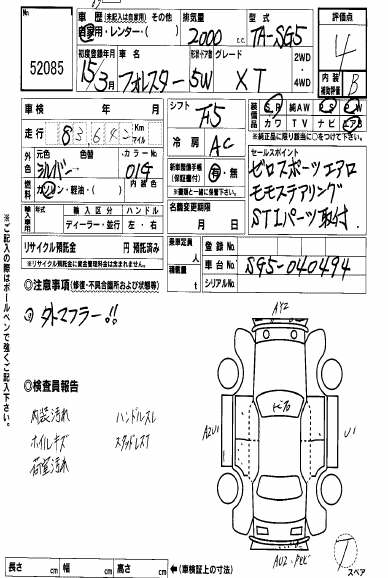 No.
52085
車歴 (未記入は自家用) その他
自家用・レンター・( )
排気量
2000 c.c.
型式
TA-SG5
評価点
4
初度登録年月
15/3月
車名
フォレスター
形状・ドア数
5W
グレード
XT
2WD
4WD
内装
補助評価
B
車検 年 月
シフト
F5
装備品
SR 純AW PS PW
カワ TV ナビ
※純正品に限り該当に○をつけて下さい。
走行
83642 Km
マイル
冷房
AC
セールスポイント
ゼロスポーツエアロ
モモステアリング
STIパーツ取付
外色
元色 色替 カラーNo.
シルバー 01G
燃料
ガソリン・軽油・( )
内装色
新車整備手帳
(保証書付)
有・無
※書類と一緒に保管下さい。
輸入車用
年式 輸入区分 ハンドル
ディーラー・並行 左・右
名義変更期限
月 日
リサイクル預託金 円 預託済み
※リサイクル預託金に資金管理料金は含まれません。
乗車定員
人
積載量
t
登録 No.
車台 No.
SG5-040494
シリアルNo.
◎注意事項 (修復・不具合箇所および状態等)
外マフラー!!
◎検査員報告
内装汚れ ハンドルスレ
ホイルキズ スタッドレス7
荷室汚れ
AY2
A2U1
U1
スペア
長さ cm 幅 cm 高さ cm ←(車検証上の寸法)
※ご記入の際はボールペンで強くご記入下さい。